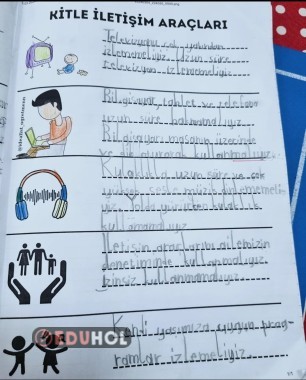 KİTLE İLETİŞİM ARAÇLARI
Televizyonu çok yakından
izlememeliyiz. Uzun süre
televizyon izlememeliyiz.
Bilgisayar, tablet ve telefona
uzun süre bakmamalıyız.
Bilgisayarı masanın üzerinde
ve dik durarak kullanmalıyız.
Kulaklıkla uzun süre ve çok
yüksek sesle müzik dinlememeli-
yiz. Yolda yürürken kulaklık
kullanmamalıyız.
İletişim araçlarını ailemizin
denetiminde kullanmalıyız.
İzinsiz kullanmamalıyız.
Kendi yaşımıza uygun prog-
ramlar izlemeliyiz.
EDUHOL